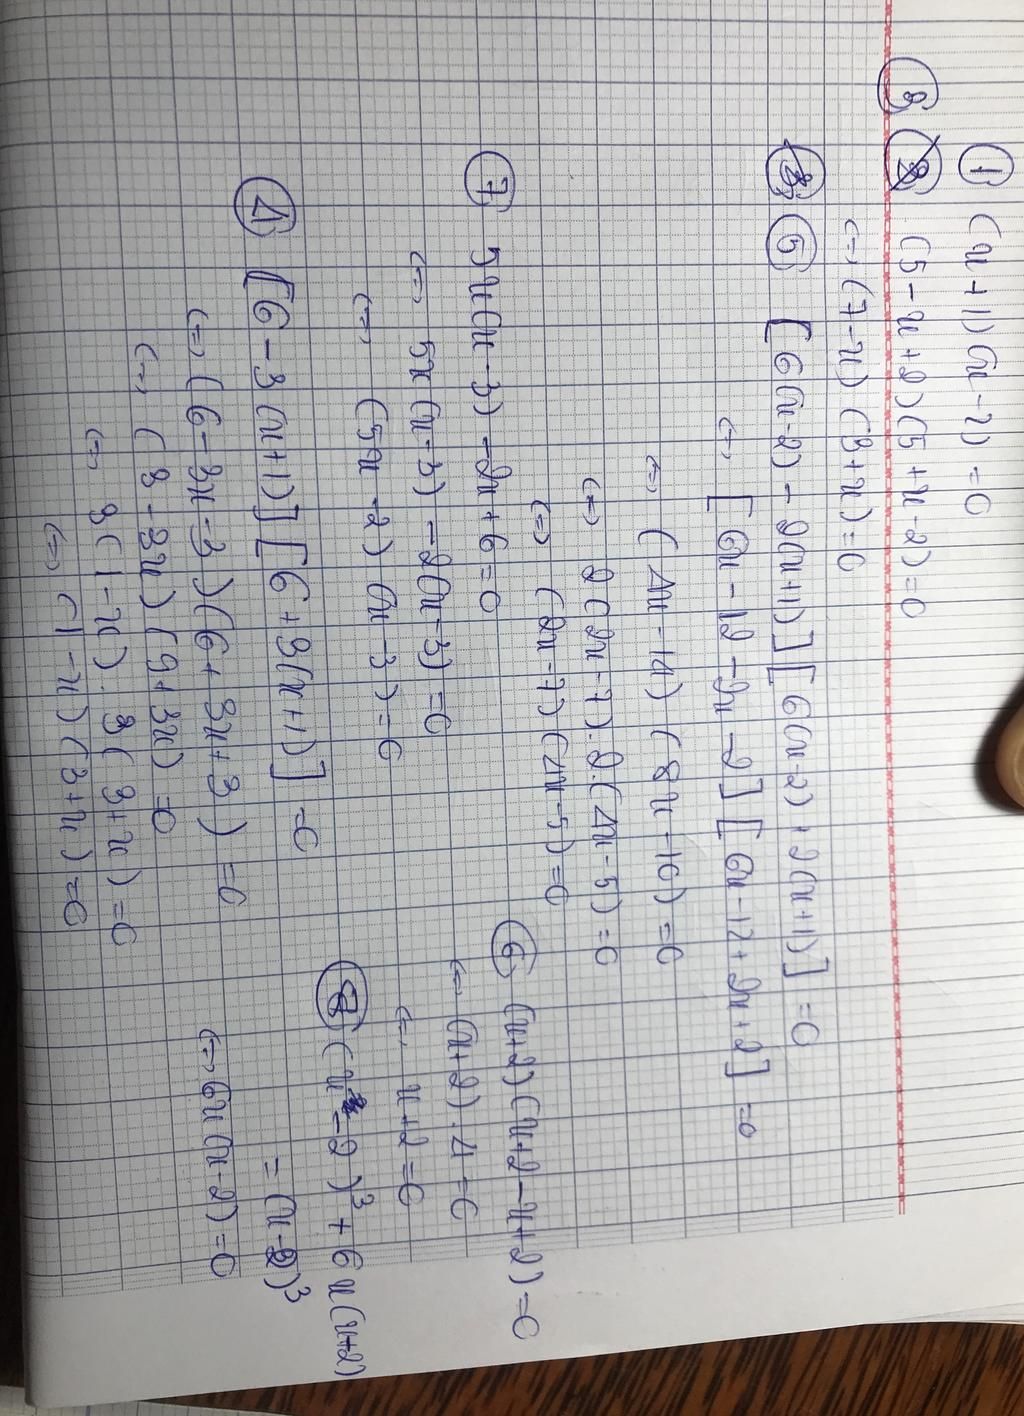 ① (x+1)(x-2) = 0
③ (5-x+2)(5+x-2)=0
<=> (7-x)(3+x)=0
⑤ [6(x-2) - 2(x+1)][6(x-2)+2(x+1)] =0
<=> [6x-12-2x-2][6x-12+2x+2] =0
<=> (4x-14)(8x-10) =0
<=> 2(2x-7).2.(4x-5)=0
<=> (2x-7)(4x-5)=0
⑦ 5x(x-3)-2x+6=0
<=> 5x(x-3)-2(x-3)=0
<=> (5x-2)(x-3)=0
④ [6-3(x+1)][6+3(x+1)] =0
<=> (6-3x-3)(6+3x+3) =0
<=> (3-3x)(9+3x) =0
<=> 3(1-x).3(3+x) =0
<=> (1-x)(3+x)=0
⑥ (x+2)(x+2-x+2)=0
<=> (x+2).4=0
<=> x+2=0
(x-2)³+6x(x+2)
= (x-2)³
<=> 6x(x-2)=0